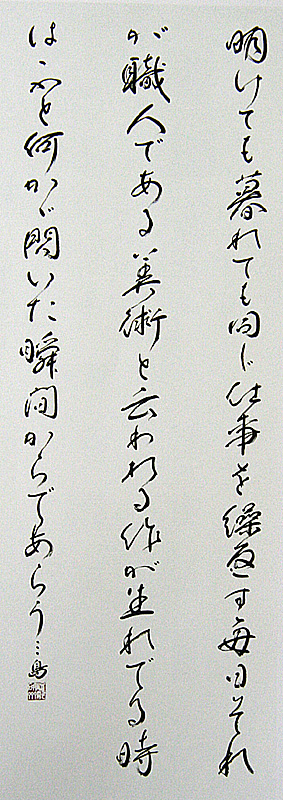 明けても暮れても同じ仕事を繰返す毎日それ
が職人である美術と云われる作が生れでる時
はふと何かゞ閃いた瞬間からであらう…島